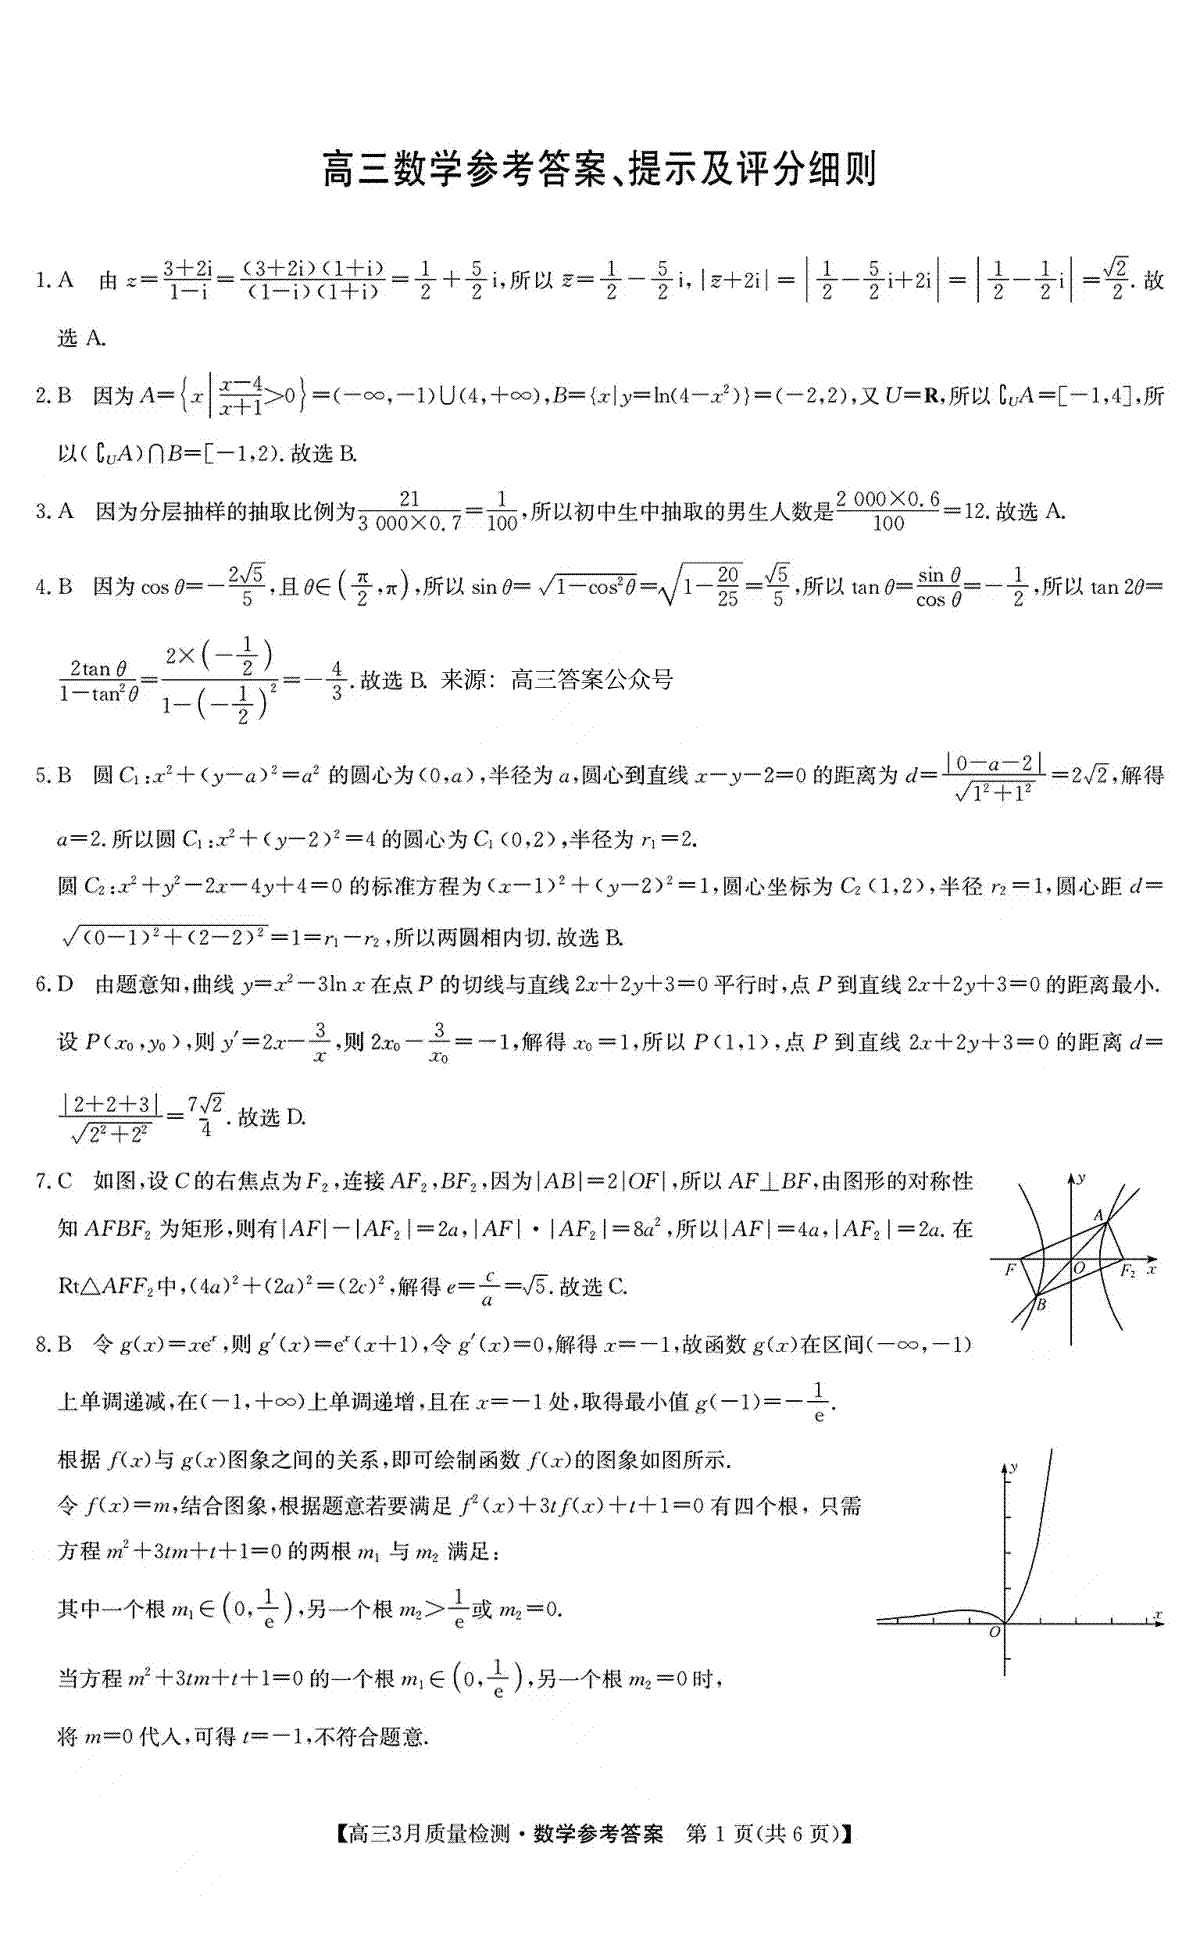 高三数学参考答案、提示及评分细则
1. A 由 z=\frac{3+2i}{1-i}=\frac{(3+2i)(1+i)}{(1-i)(1+i)}=\frac{1}{2}+\frac{5}{2}i,所以 \bar{z}=\frac{1}{2}-\frac{5}{2}i, |\bar{z}+2i|=|\frac{1}{2}-\frac{5}{2}i+2i|=|\frac{1}{2}-\frac{1}{2}i|=\frac{\sqrt{2}}{2}. 故
选 A.
2. B 因为 A={x|\frac{x-4}{x+1}>0}=(-∞,-1)∪(4,+∞),B={x|y=ln(4-x²)}=(-2,2),又 U=R,所以 ∁_U A=[-1,4],所
以(∁_U A)∩B=[-1,2). 故选 B.
3. A 因为分层抽样的抽取比例为\frac{21}{3 000×0.7}=\frac{1}{100},所以初中生中抽取的男生人数是\frac{2 000×0.6}{100}=12. 故选 A.
4. B 因为 cos θ=-\frac{2\sqrt{5}}{5},且 θ∈(\frac{π}{2},π),所以 sin θ=\sqrt{1-cos²θ}=\sqrt{1-\frac{20}{25}}=\frac{\sqrt{5}}{5},所以 tan θ=\frac{sin θ}{cos θ}=-\frac{1}{2},所以 tan 2θ=
\frac{2tan θ}{1-tan²θ}=\frac{2×(-\frac{1}{2})}{1-(-\frac{1}{2})²}=-\frac{4}{3}. 故选 B. 来源：高三答案公众号
5. B 圆 C₁:x²+(y-a)²=a² 的圆心为(0,a),半径为 a,圆心到直线 x-y-2=0 的距离为 d=\frac{|0-a-2|}{\sqrt{1²+1²}}=2\sqrt{2},解得
a=2. 所以圆 C₁:x²+(y-2)²=4 的圆心为 C₁(0,2),半径为 r₁=2.
圆 C₂:x²+y²-2x-4y+4=0 的标准方程为(x-1)²+(y-2)²=1,圆心坐标为 C₂(1,2),半径 r₂=1,圆心距 d=
\sqrt{(0-1)²+(2-2)²}=1=r₁-r₂,所以两圆相内切. 故选 B.
6. D 由题意知,曲线 y=x²-3ln x 在点 P 的切线与直线 2x+2y+3=0 平行时,点 P 到直线 2x+2y+3=0 的距离最小.
设 P(x₀,y₀),则 y'=2x-\frac{3}{x},则 2x₀-\frac{3}{x₀}=-1,解得 x₀=1,所以 P(1,1),点 P 到直线 2x+2y+3=0 的距离 d=
\frac{|2+2+3|}{\sqrt{2²+2²}}=\frac{7\sqrt{2}}{4}. 故选 D.
7. C 如图,设 C 的右焦点为 F₂,连接 AF₂,BF₂,因为|AB|=2|OF|,所以 AF⊥BF,由图形的对称性
知 AFBF₂ 为矩形,则有|AF|-|AF₂|=2a,|AF|·|AF₂|=8a²,所以|AF|=4a,|AF₂|=2a. 在
Rt△AFF₂中,(4a)²+(2a)²=(2c)²,解得 e=\frac{c}{a}=\sqrt{5}. 故选 C.
y
A
F
O
F₂
x
B
8. B 令 g(x)=xeˣ,则 g'(x)=eˣ(x+1),令 g'(x)=0,解得 x=-1,故函数 g(x)在区间(-∞,-1)
上单调递减,在(-1,+∞)上单调递增,且在 x=-1 处,取得最小值 g(-1)=-\frac{1}{e}.
根据 f(x)与 g(x)图象之间的关系,即可绘制函数 f(x)的图象如图所示.
令 f(x)=m,结合图象,根据题意若要满足 f²(x)+3tf(x)+t+1=0 有四个根，只需
方程 m²+3tm+t+1=0 的两根 m₁ 与 m₂ 满足：
其中一个根 m₁∈(0,\frac{1}{e}),另一个根 m₂>\frac{1}{e}或 m₂=0.
当方程 m²+3tm+t+1=0 的一个根 m₁∈(0,\frac{1}{e}),另一个根 m₂=0 时,
将 m=0 代入,可得 t=-1,不符合题意.
y
x
O
【高三3月质量检测·数学参考答案 第 1 页(共 6 页)】